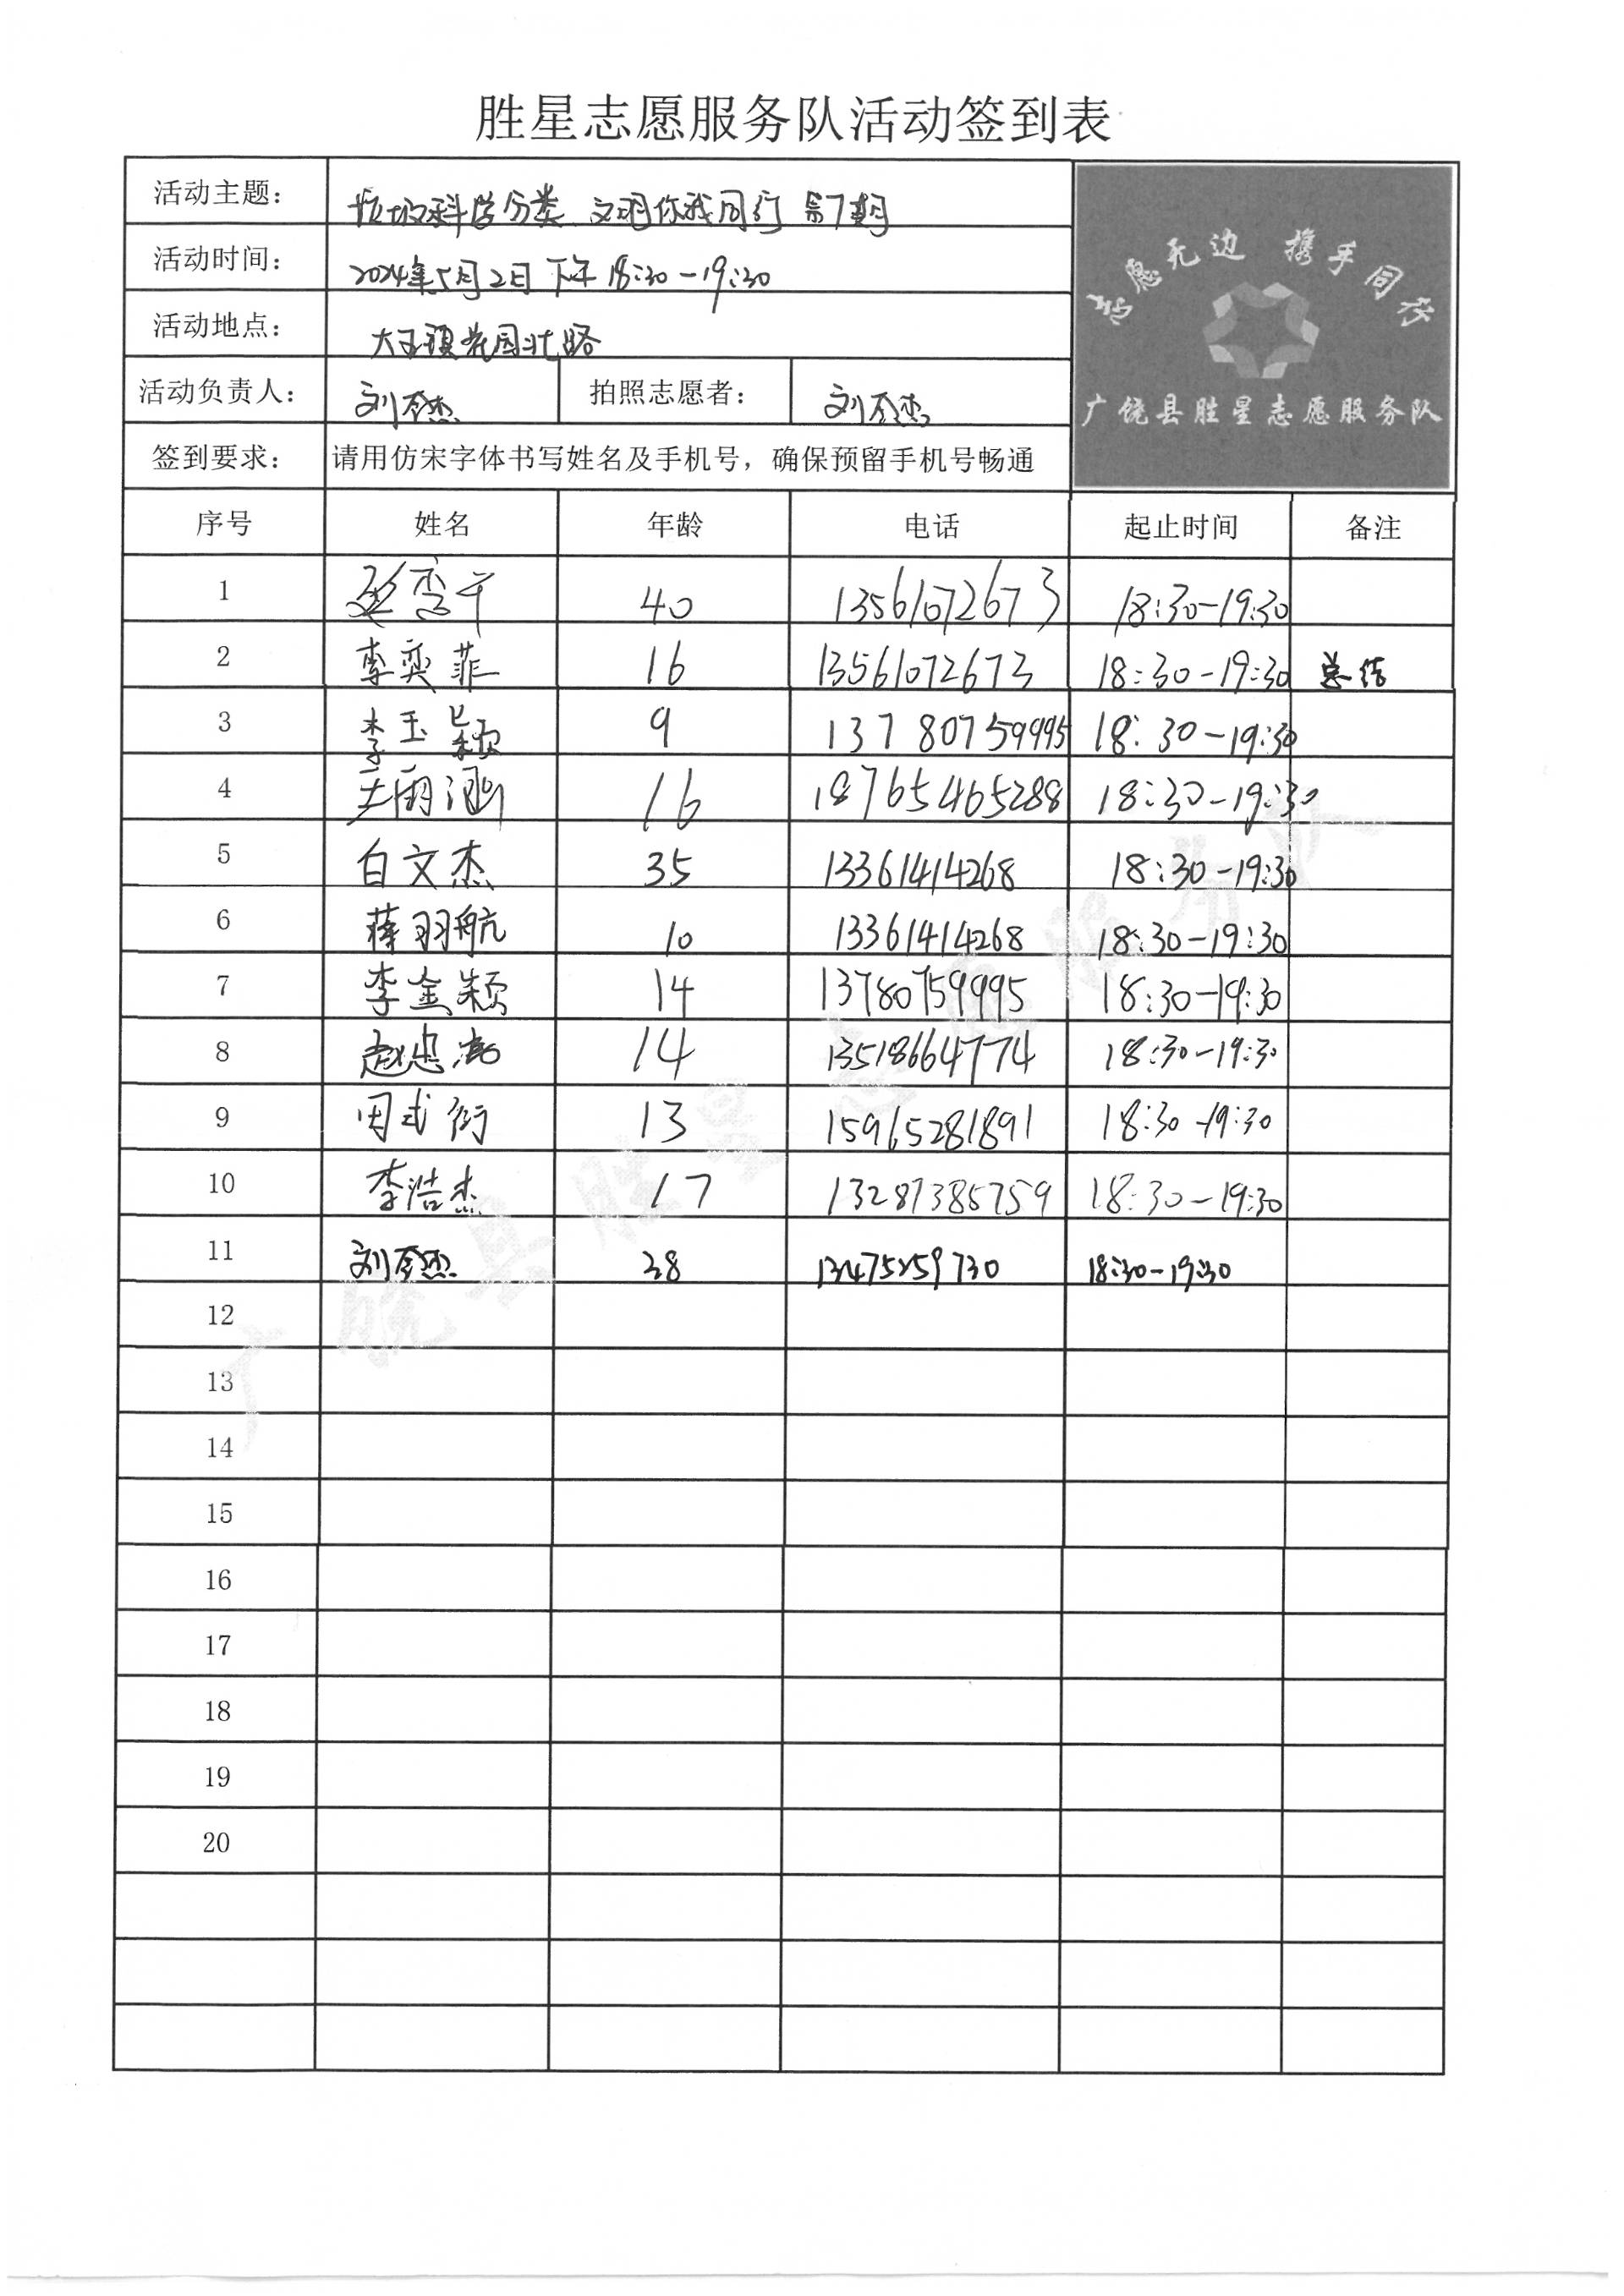 胜星志愿服务队活动签到表
活动主题： 垃圾科学分类 文明你我同行 第7期
志愿无边 携手同行
活动时间： 2024年5月2日 下午 18:30-19:30
活动地点： 大王镇花园北路
活动负责人： 刘奎杰 拍照志愿者： 刘奎杰
广饶县胜星志愿服务队
签到要求： 请用仿宋字体书写姓名及手机号，确保预留手机号畅通
序号 姓名 年龄 电话 起止时间 备注
1 40 13561072673 18:30-19:30
2 李奕菲 16 13561072673 18:30-19:30 总结
3 李玉颖 9 13780759995 18:30-19:30
4 王雨涵 16 18765465288 18:30-19:30
5 白文杰 35 13361414268 18:30-19:30
6 蒋羽航 10 13361414268 18:30-19:30
7 李金颖 14 13780759995 18:30-19:30
8 赵忠 14 13518664774 18:30-19:30
9 周式衡 13 15965281891 18:30-19:30
10 李浩杰 17 13287385759 18:30-19:30
11 刘奎杰 38 13475259730 18:30-19:30
12
13
14
15
16
17
18
19
20
广饶县胜星志愿服务队